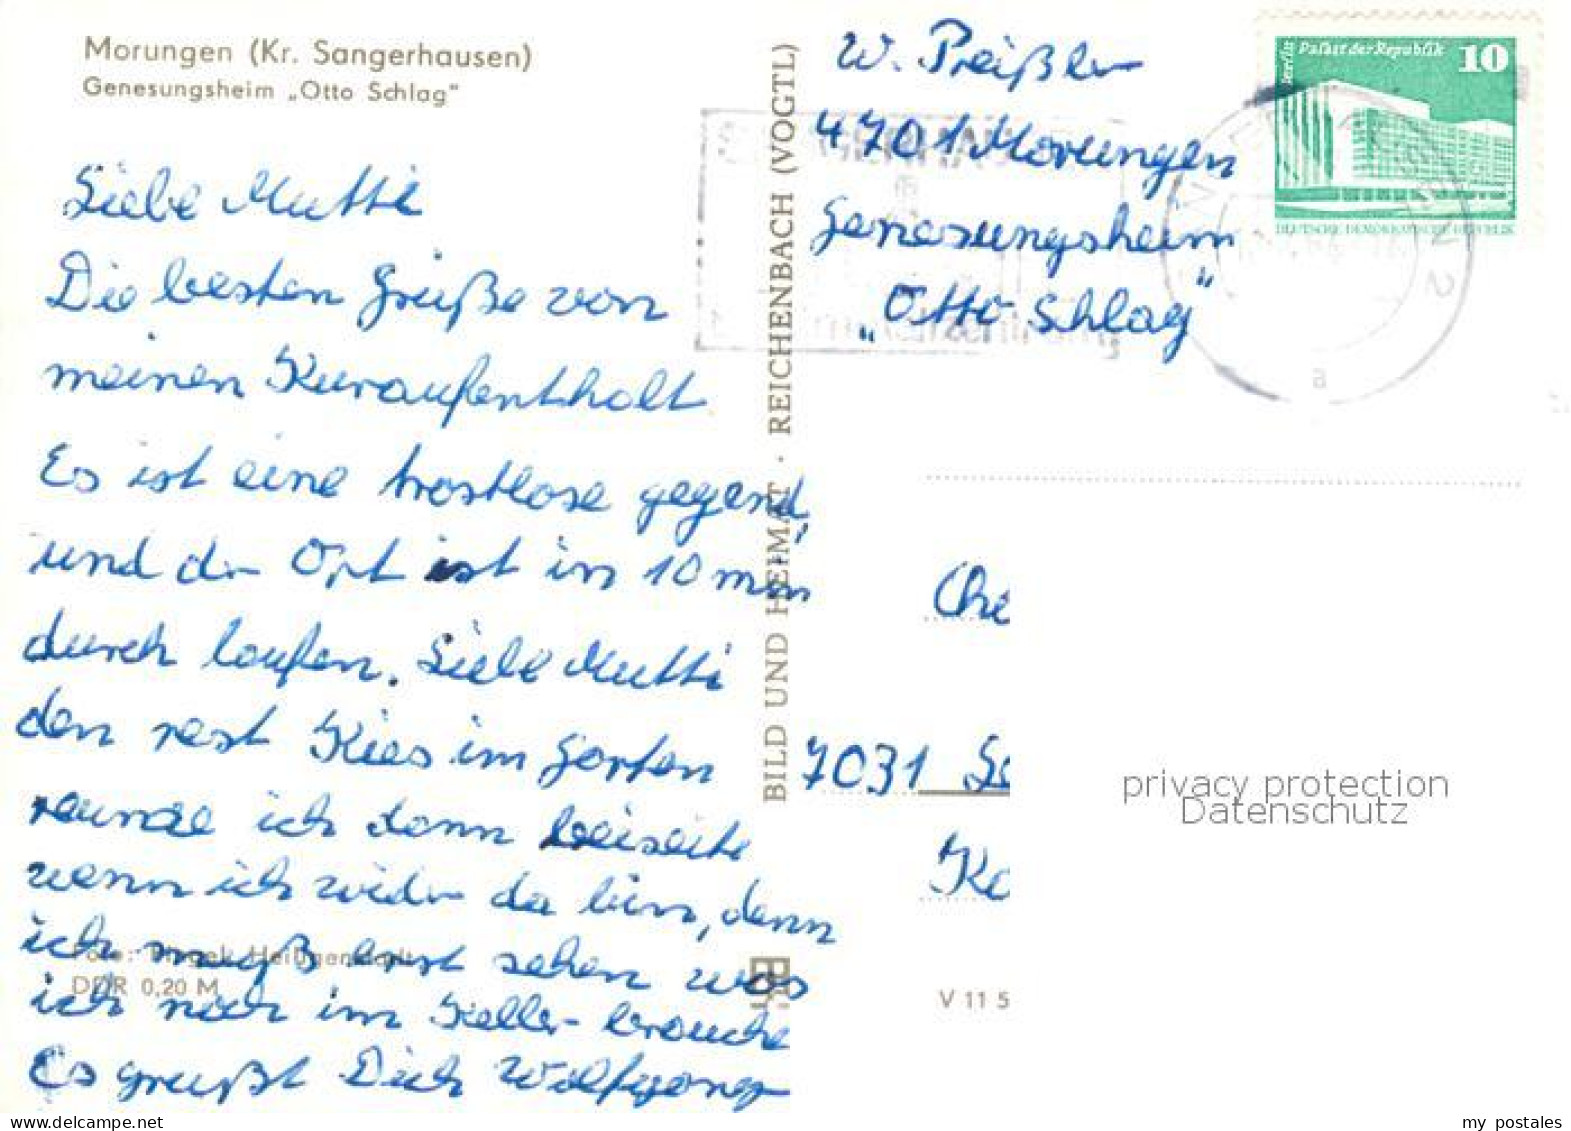 Morungen (Kr. Sangerhausen)
Genesungsheim „Otto Schlag"
Liebe Mutti
Die besten Grüße von
meinen Kuraufenthalt
Es ist eine trostlose gegend,
und der Ort ist in 10 min
durch laufen. Liebe Mutti
den rest Kies im Garten
räume ich dann beiseite
wenn ich wider da bin, denn
ich muß erst sehen was
ich noch im Keller brauche
Es grüßt Dich Wolfgang
Foto: Heiligenstadt
DDR 0,20 M
BILD UND HEIMAT · REICHENBACH (VOGTL)
W. Preißler
4701 Morungen
Genesungsheim
„Otto Schlag"
Berlin Palast der Republik 10
DEUTSCHE DEMOKRATISCHE REPUBLIK
2
a
Che
7031 Le
Ko
V 11 5
privacy protection
Datenschutz
www.ansichtskartenversand.com
my_postales